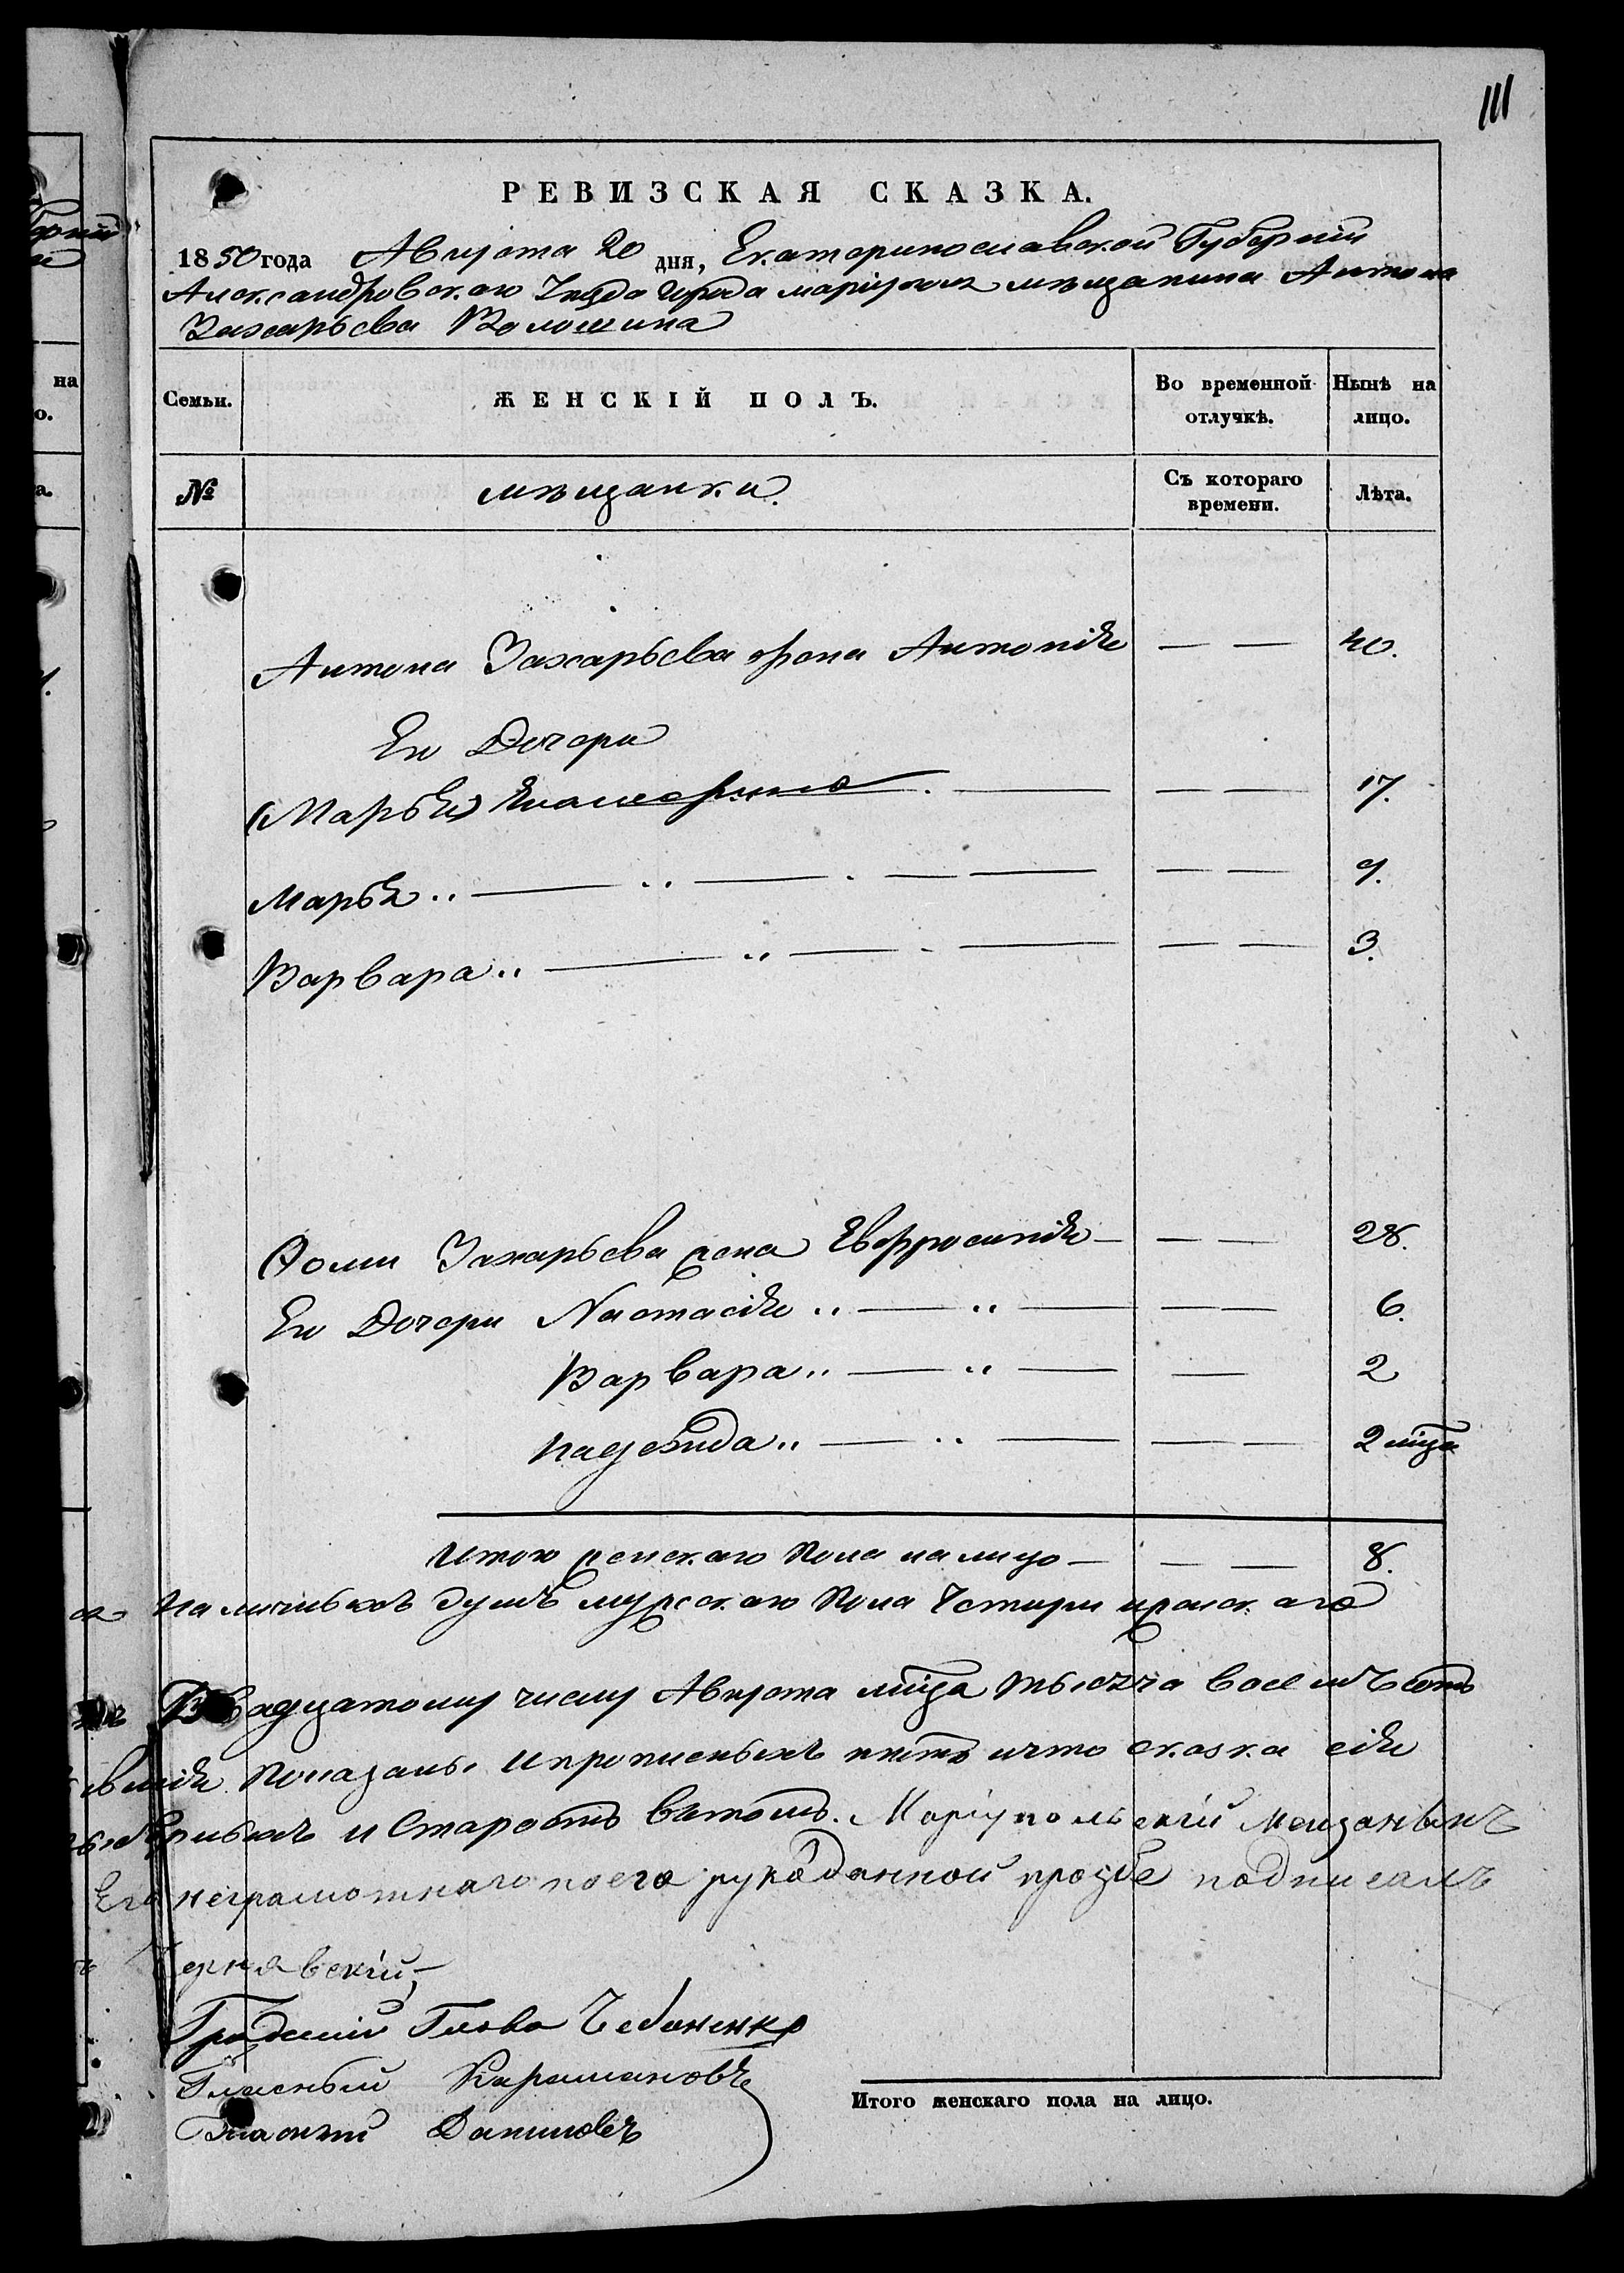 111
РЕВИЗСКАЯ СКАЗКА.
1850 года Августа 20 дня, Екатеринославской Губерніи
Александровскаго Уезда Города маріуполя мѣщанина Антона
Захарьева Волошина
Семьи. ЖЕНСКІЙ ПОЛЪ. Во временной отлучкѣ. Нынѣ на лицо.
№ мѣщанки. Съ котораго времени. Лѣта.
Антона Захарьева жена Антонія — — 40.
Ея Дочери
(Марья) — — 17.
Марья — — 9.
Варвара — — 3.
Фомы Захарьева жена Евфросинія — — 28.
Ея Дочери Настасія — — 6.
Варвара — 2
надежда — — 2 мца
Итого женскаго Пола налицо — — 8.
наличныхъ душъ мужескаго Пола Четыри женскаго
Двадцатому числу Августа мца тысяча восемьсотъ
показаны ипрописныхъ нѣтъ ичто сказка сія
и Старостъ втомъ. Маріупольскій Мещаныпъ
Его неграмотнаго поего рукоданной прозбе подписалъ
Чернявскій
Градскій Глава Чебаненко
Гласный Карамановъ
Гласный Даниловъ
Итого женскаго пола на лицо.